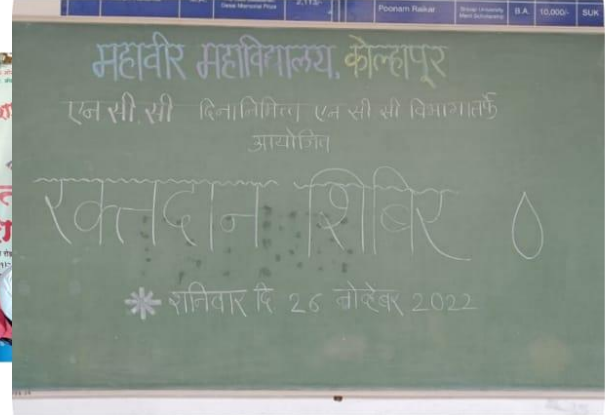 2,115/-
Poonam Raikar
B.A.
10,000/-
SUK
महावीर महाविद्यालय, कोल्हापूर
एन.सी.सी दिनानिमित्त एन सी सी विभागातर्फे
आयोजित
रक्तदान शिबिर
शनिवार दि. 26 नोव्हेंबर 2022